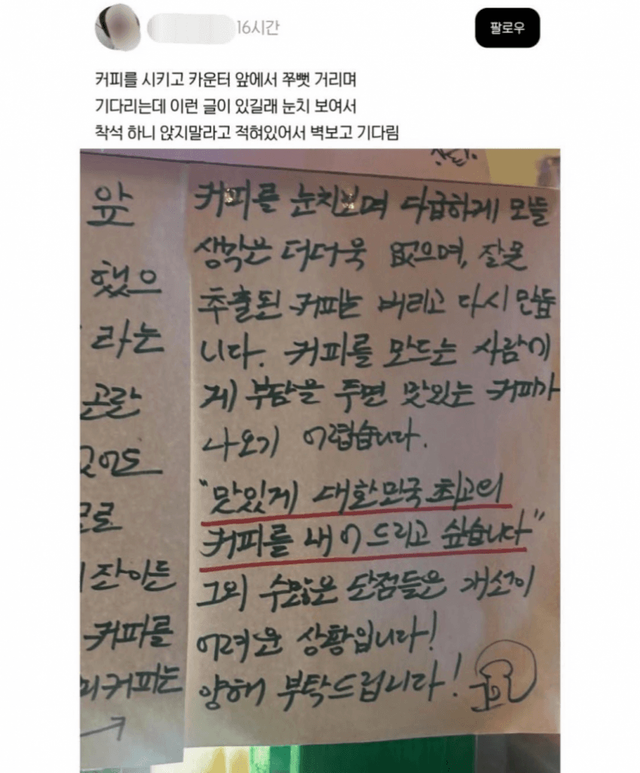 16시간
팔로우
커피를 시키고 카운터 앞에서 쭈뼛 거리며
기다리는데 이런 글이 있길래 눈치 보여서
착석 하니 앉지말라고 적혀있어서 벽보고 기다림
앞
했으
라는
곤란
모로
잔이든
커피를
커피는
커피를 눈치보며 다급하게 모들
생각은 더더욱 없으며, 잘못
추출된 커피는 버리고 다시 만듭
니다. 커피를 만드는 사람에
게 부담을 주면 맛있는 커피가
나오기 어렵습니다.
"맛있게 대한민국 최고의
커피를 내어드리고 싶습니다"
그외 수많은 단점들은 개선이
어려운 상황입니다!
양해 부탁드립니다!